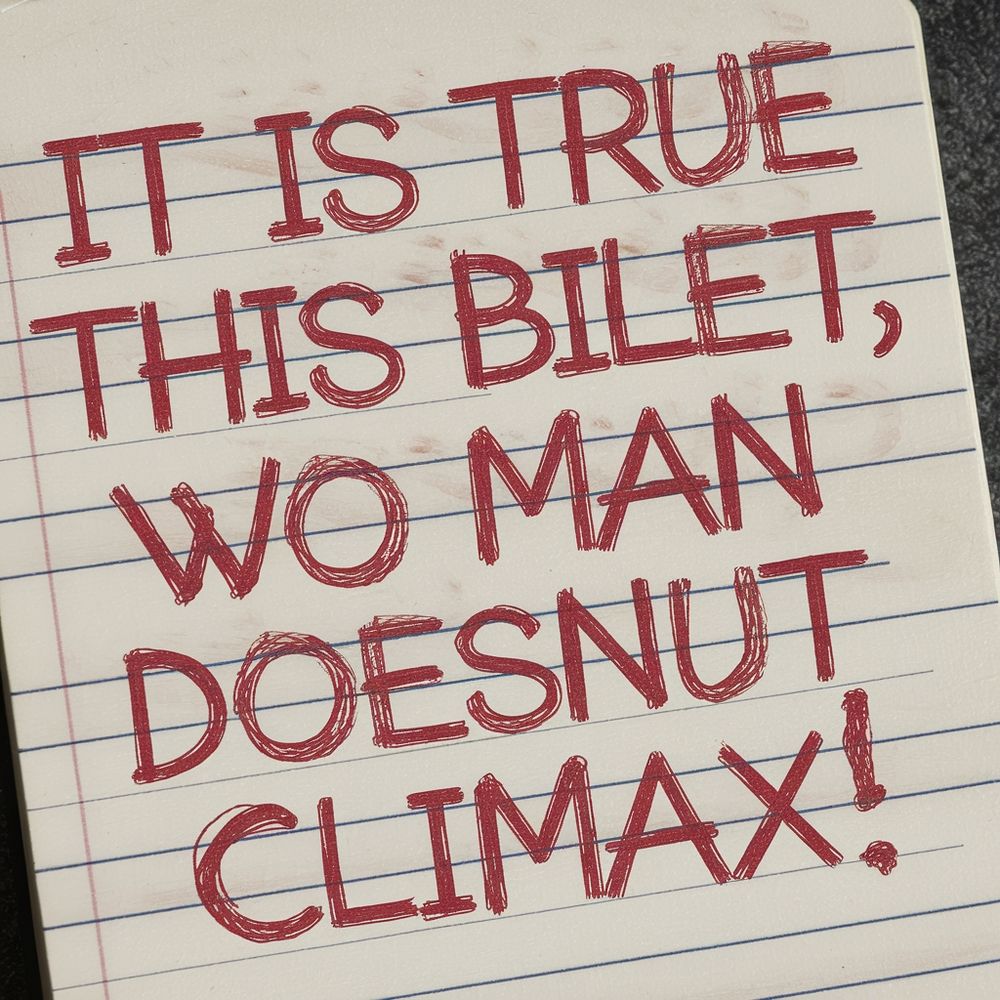 IT IS TRUE
THIS BILET,
WO MAN
DOESNUT
CLIMAX!